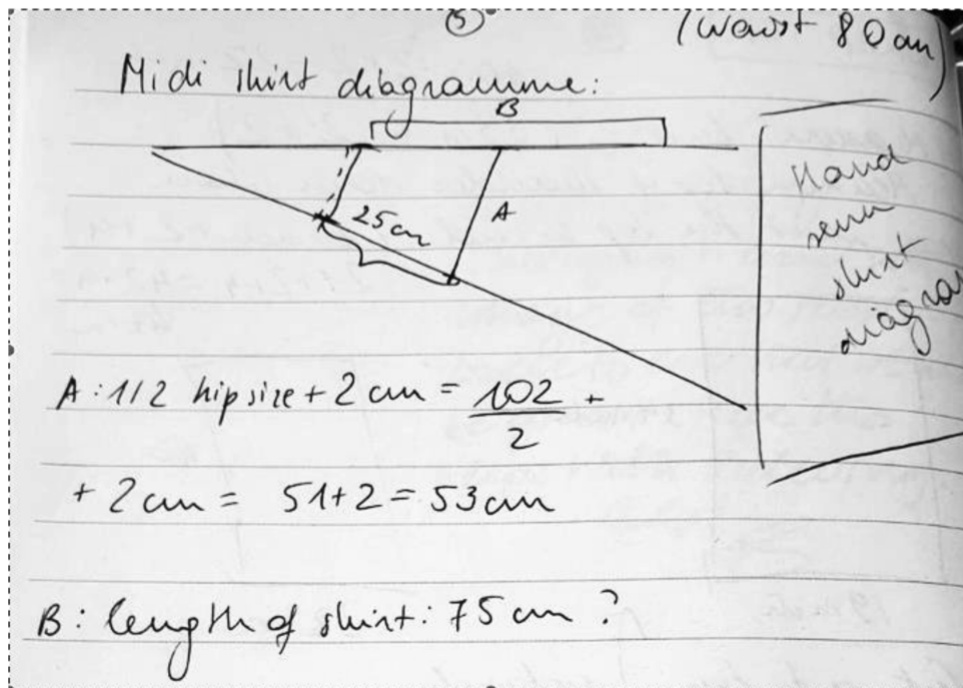 5
(waist 80cm)
Midi skirt diagramme:
B
25cm
A
Hand
sewn
skirt
diagram
A: 1/2 hip size + 2 cm = 102/2 +
+ 2 cm = 51+2 = 53cm
B: length of skirt: 75 cm ?